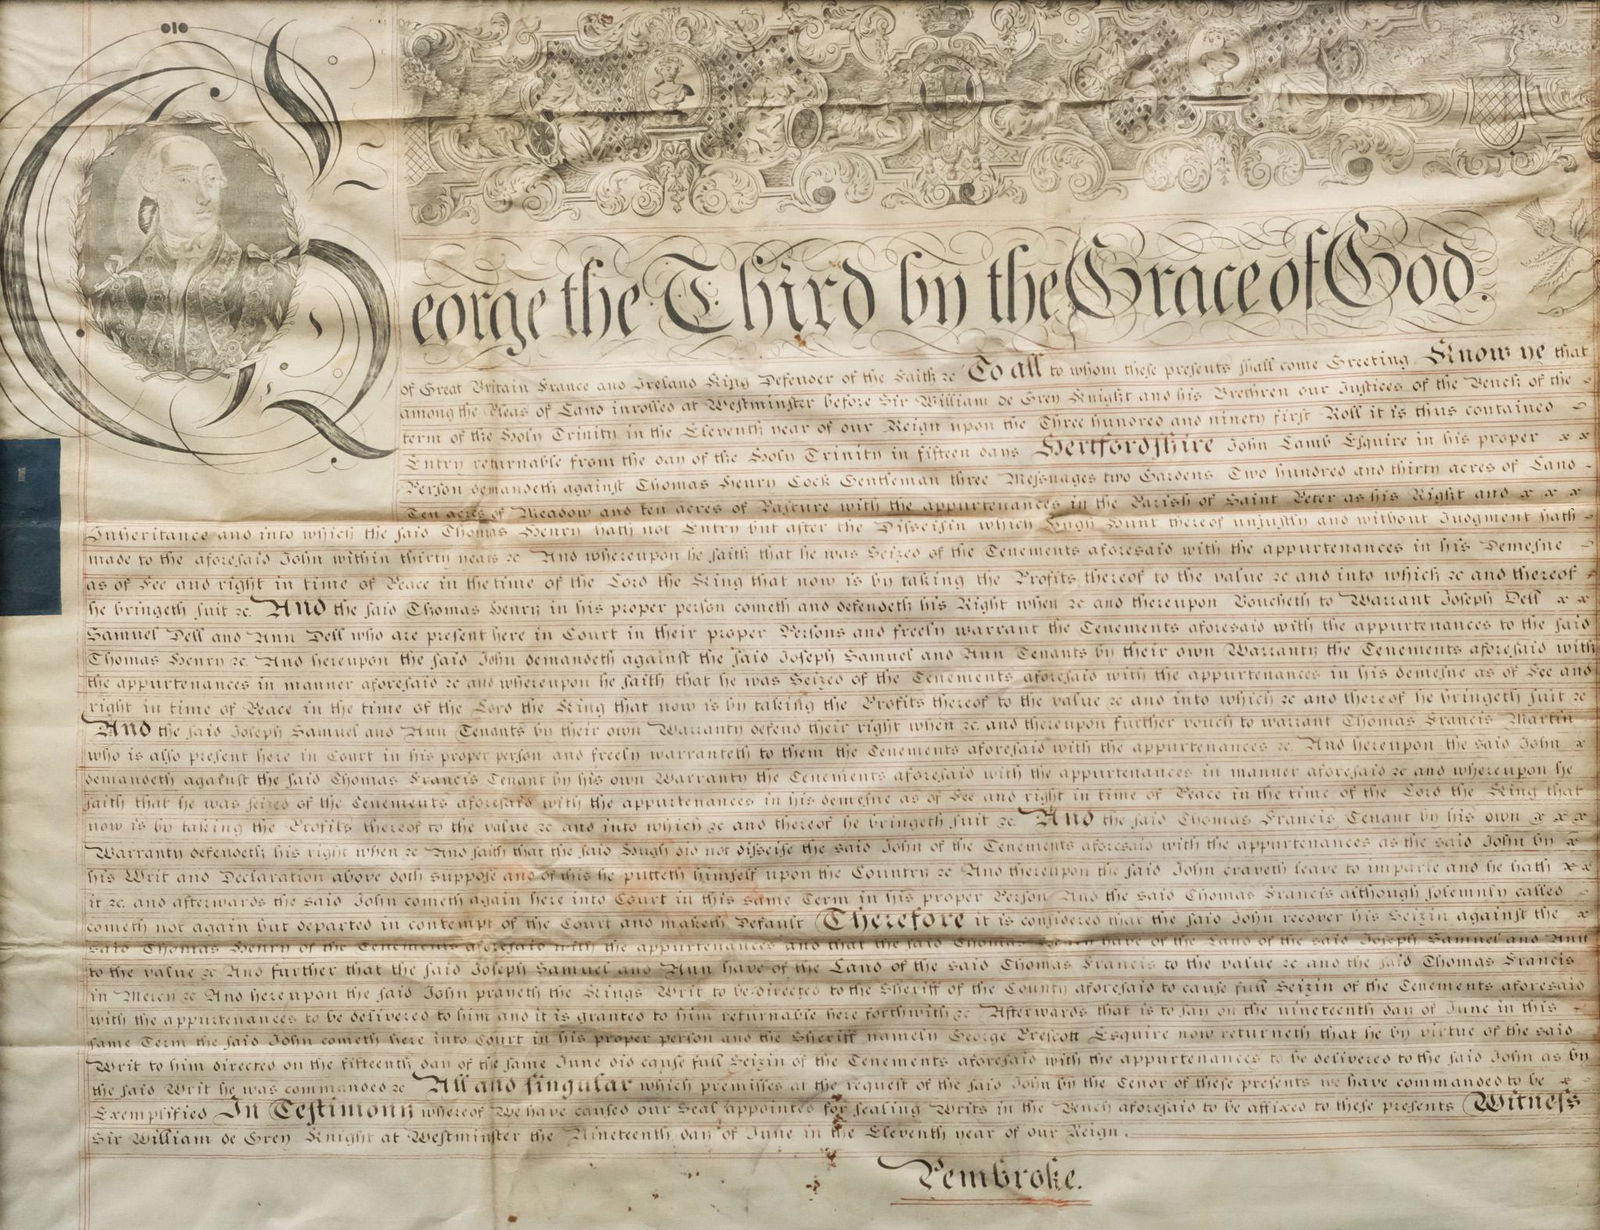 George the Third by the Grace of God.
of Great Britain France and Ireland King Defender of the Faith &c To all to whom these presents shall come Greeting Know ye that
among the Pleas of Land inrolled at Westminster before Sir William de Grey Knight and his Brethren our Justices of the Bench of the
term of the Holy Trinity in the Eleventh year of our Reign upon the Three hundred and ninety first Roll it is thus contained
Entry returnable from the day of the Holy Trinity in fifteen days Hertfordshire John Lamb Esquire in his proper
Person demandeth against Thomas Henry Cock Gentleman three Messuages two Gardens Two hundred and thirty acres of Land
Ten acres of Meadow and ten acres of Pasture with the appurtenances in the Parish of Saint Peter as his Right and
Inheritance and into which the said Thomas Henry hath not Entry but after the Disseisin which Hugh Hunt thereof unjustly and without Judgment hath
made to the aforesaid John within thirty years &c And whereupon he saith that he was Seized of the Tenements aforesaid with the appurtenances in his Demesne
as of Fee and right in time of Peace in the time of the Lord the King that now is by taking the Profits thereof to the value &c and into which &c and thereof
he bringeth suit &c. And the said Thomas Henry in his proper person cometh and defendeth his Right when &c and thereupon Voucheth to Warrant Joseph Dell
Samuel Dell and Ann Dell who are present here in Court in their proper Persons and freely warrant the Tenements aforesaid with the appurtenances to the said
Thomas Henry &c. And hereupon the said John demandeth against the said Joseph Samuel and Ann Tenants by their own Warranty the Tenements aforesaid with
the appurtenances in manner aforesaid &c and whereupon he saith that he was Seized of the Tenements aforesaid with the appurtenances in his demesne as of Fee and
right in time of Peace in the time of the Lord the King that now is by taking the Profits thereof to the value &c and into which &c and thereof he bringeth suit &c
And the said Joseph Samuel and Ann Tenants by their own Warranty defend their right when &c. and thereupon further vouch to warrant Thomas Francis Martin
who is also present here in Court in his proper person and freely warranteth to them the Tenements aforesaid with the appurtenances &c. And hereupon the said John
demandeth against the said Thomas Francis Tenant by his own Warranty the Tenements aforesaid with the appurtenances in manner aforesaid &c and whereupon he
saith that he was seized of the Tenements aforesaid with the appurtenances in his demesne as of Fee and right in time of Peace in the time of the Lord the King that
now is by taking the Profits thereof to the value &c and into which &c and thereof he bringeth suit &c. And the said Thomas Francis Tenant by his own
Warranty defendeth his right when &c And saith that the said Hugh did not disseise the said John of the Tenements aforesaid with the appurtenances as the said John by
his Writ and Declaration above doth suppose and of this he putteth himself upon the Country &c And thereupon the said John craveth leave to imparle and he hath
it &c. and afterwards the said John cometh again here into Court in this same Term in his proper Person And the said Thomas Francis although solemnly called
cometh not again but departed in contempt of the Court and maketh Default Therefore it is considered that the said John recover his Seizin against the
said Thomas Henry of the Tenements aforesaid with the appurtenances and that the said Thomas Henry have of the Land of the said Joseph Samuel and Ann
to the value &c And further that the said Joseph Samuel and Ann have of the Land of the said Thomas Francis to the value &c and the said Thomas Francis
in Mercy &c And hereupon the said John prayeth the Kings Writ to be directed to the Sheriff of the County aforesaid to cause full Seizin of the Tenements aforesaid
with the appurtenances to be delivered to him and it is granted to him returnable here forthwith &c Afterwards that is to say on the nineteenth day of June in this
same Term the said John cometh here into Court in his proper person and the Sheriff namely George Prescott Esquire now returneth that he by virtue of the said
Writ to him directed on the fifteenth day of the same June did cause full Seizin of the Tenements aforesaid with the appurtenances to be delivered to the said John as by
the said Writ he was commanded &c All and singular which premisses at the request of the said John by the Tenor of these presents we have commanded to be
Exemplified In Testimony whereof We have caused our Seal appointed for sealing Writs in the Bench aforesaid to be affixed to these presents Witness
Sir William de Grey Knight at Westminster the Nineteenth day of June in the Eleventh year of our Reign.
Pembroke.